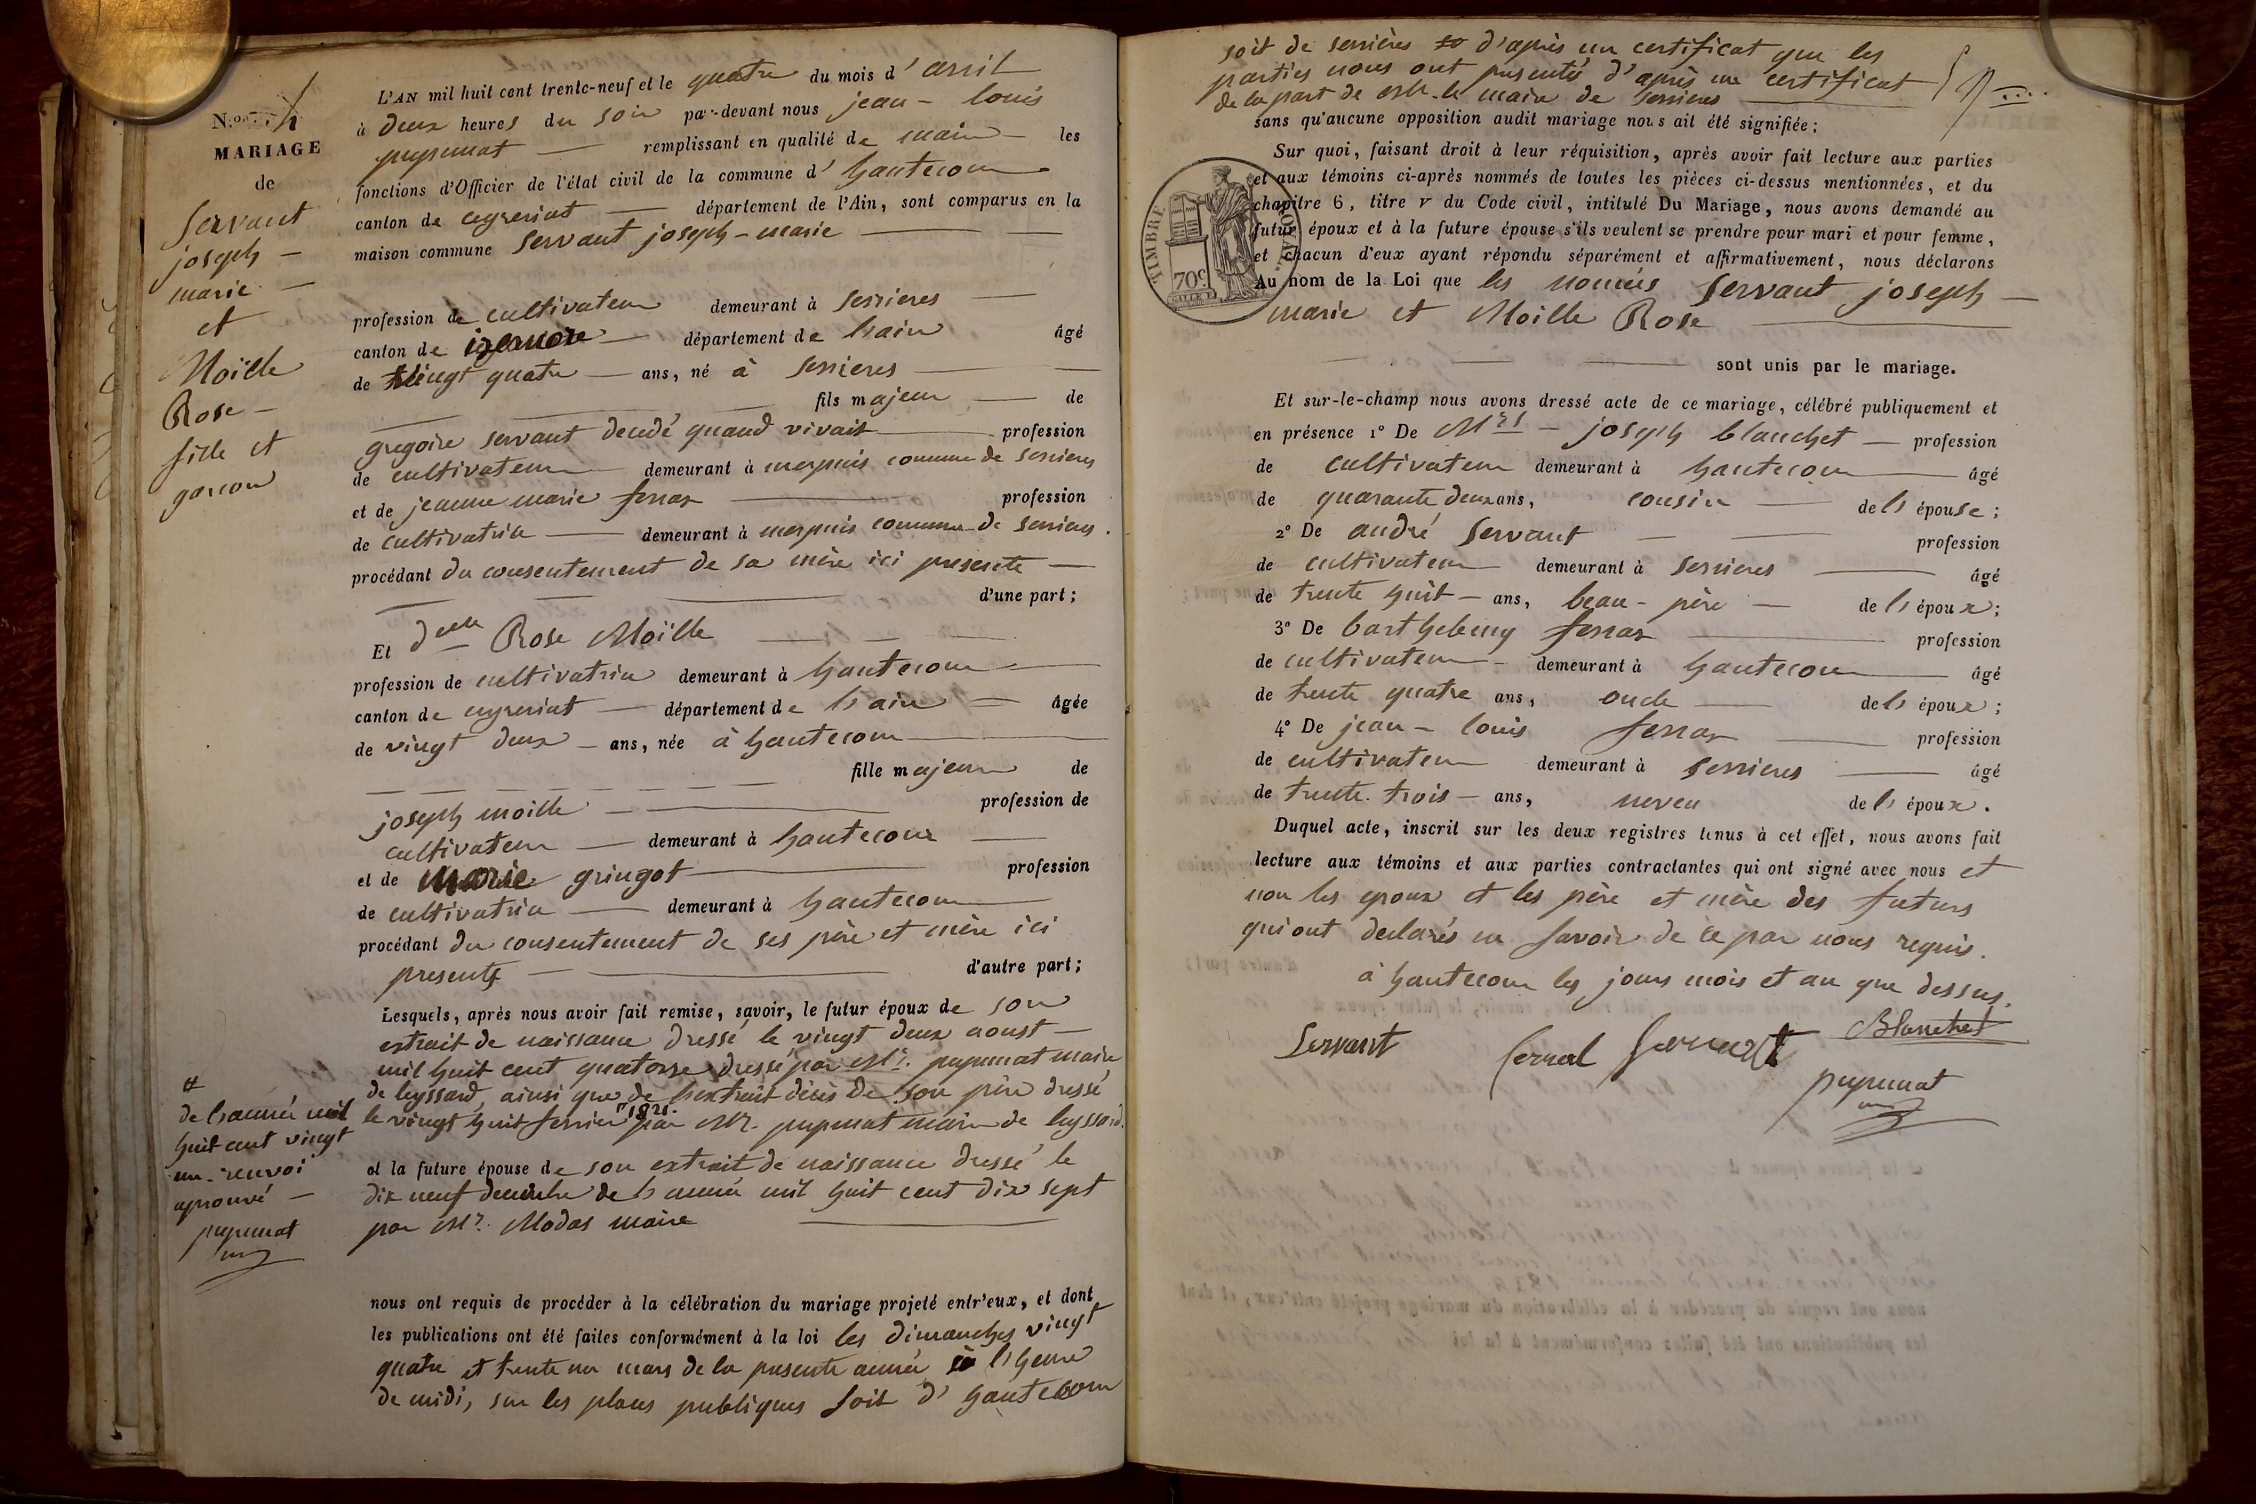 N.º 4
MARIAGE
de
Servant
joseph -
marie -
et
Moille
Rose -
fille et
garcon
L'AN mil huit cent trente-neuf et le quatre du mois d'avril
à deux heures du soir par-devant nous jean - louis
pupunat — remplissant en qualité de maire — les
fonctions d'Officier de l'état civil de la commune d'hautecour
canton de ceyzeriat — département de l'Ain, sont comparus en la
maison commune Servant joseph - marie
profession de cultivateur demeurant à serrieres
canton de izernore — département de l'ain âgé
de vingt quatre — ans, né à serrieres
fils majeur — de
gregoire servant decedé quand vivait — profession
de cultivateur demeurant à merpuis commune de serrieres
et de jeanne marie ferrar — profession
de cultivatrice — demeurant à merpuis commune de serrieres.
procédant du consentement de sa mère ici presente —
d'une part;
Et delle Rose Moille
profession de cultivatrice demeurant à hautecour
canton de ceyzeriat — département de l'ain — âgée
de vingt deux — ans, née à hautecour
fille majeure de
joseph moille — profession de
cultivateur — demeurant à hautecour
et de marie gringot — profession
de cultivatrice — demeurant à hautecour
procédant du consentement de ses père et mère ici
presents — d'autre part;
Lesquels, après nous avoir fait remise, savoir, le futur époux de son
extrait de naissance dressé le vingt deux aoust —
mil huit cent quatorze dressé par Mr. pupunat maire
de leyssard, ainsi que de l'extrait décès de son père dressé
le vingt huit fevrier # 1821. par Mr. pupunat maire de leyssard.
#
de l'année mil
huit cent vingt
un - renvoi
aprouvé —
pupunat
et la future épouse de son extrait de naissance dressé le
dix neuf decembre de l'année mil huit cent dix sept
par Mr. Modas maire
nous ont requis de procéder à la célébration du mariage projeté entr'eux, et dont
les publications ont été faites conformément à la loi les dimanches vingt
quatre et trente un mars de la presente année à l'heure
de midi, sur les places publiques soit d'hautecour
soit de serrières d'après un certificat que les
parties nous ont presenté d'après un certificat
de la part de Mr. le maire de serrieres
sans qu'aucune opposition audit mariage nous ait été signifiée;
Sur quoi, faisant droit à leur réquisition, après avoir fait lecture aux parties
et aux témoins ci-après nommés de toutes les pièces ci-dessus mentionnées, et du
chapitre 6, titre V du Code civil, intitulé Du Mariage, nous avons demandé au
futur époux et à la future épouse s'ils veulent se prendre pour mari et pour femme,
et chacun d'eux ayant répondu séparément et affirmativement, nous déclarons
Au nom de la Loi que les nommés Servant joseph -
marie et Moille Rose
TIMBRE ROYAL
70c
sont unis par le mariage.
Et sur-le-champ nous avons dressé acte de ce mariage, célébré publiquement et
en présence 1º De Mrs - joseph blanchet — profession
de cultivateur demeurant à hautecour âgé
de quarante deux ans, cousin — de l'épouse;
2º De andré Servant — profession
de cultivateur demeurant à serrieres — âgé
de trente huit — ans, beau - père — de l'époux;
3º De barthelemy ferrar — profession
de cultivateur - demeurant à hautecour âgé
de trente quatre ans, oncle — de l'époux;
4º De jean - louis ferrar — profession
de cultivateur demeurant à serrieres — âgé
de trente trois — ans, neveu de l'époux.
Duquel acte, inscrit sur les deux registres tenus à cet effet, nous avons fait
lecture aux témoins et aux parties contractantes qui ont signé avec nous et
non les epoux et les père et mère des futurs
qui ont declarés ne savoir de ce par nous requis.
à hautecour les jours mois et an que dessus.
Servant ferral Blanchet
pupunat